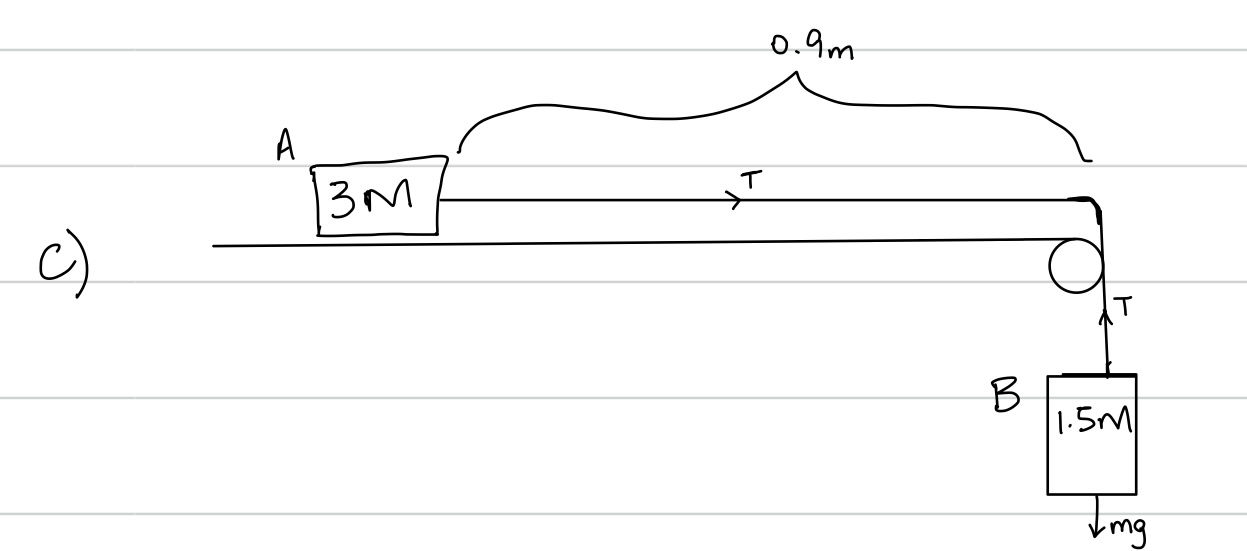 0.9m
A
T
3M
C)
T
B
1.5M
mg